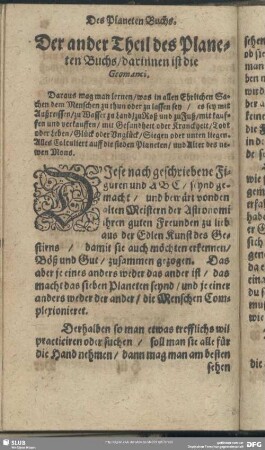 Des Planeten Buchs.
Der ander Theil des Plane-
ten Buchs / darinnen ist die
Geomanci.
Daraus mag man lernen / was in allen Ehrlichen Sa-
chen dem Menschen zu thun oder zu lassen sey / es sey mit
Außreissen / zu Wasser zu Land / zu Roß und zu Fuß / mit kauf-
fen und verkauffen / mit Gesundheit oder Kranckheit / Todt
oder Leben / Glück oder Unglück / Siegen oder unten liegen.
Alles Calculiert auff die sieben Planeten / und Alter des ne-
wen Mons.
Diese nach geschriebene Fi-
guren und ABC / seynd ge-
macht / und bewärt von den
alten Meistern der Astronomi
ihren guten Freunden zu lieb
aus der Edlen Kunst des Ge-
stirns / damit sie auch möchten erkennen /
Böß und Gut / zusammen gezogen. Das
aber je eines anders weder das ander ist / das
macht das sieben Planeten seynd / und je einer
anders weder der ander / die Menschen Com-
plexionieret.
Derhalben so man etwas trefflichs wil
practiciren oder suchen / soll man sie alle für
die Hand nehmen / dann mag man am besten
sehen
SLUB
DFG